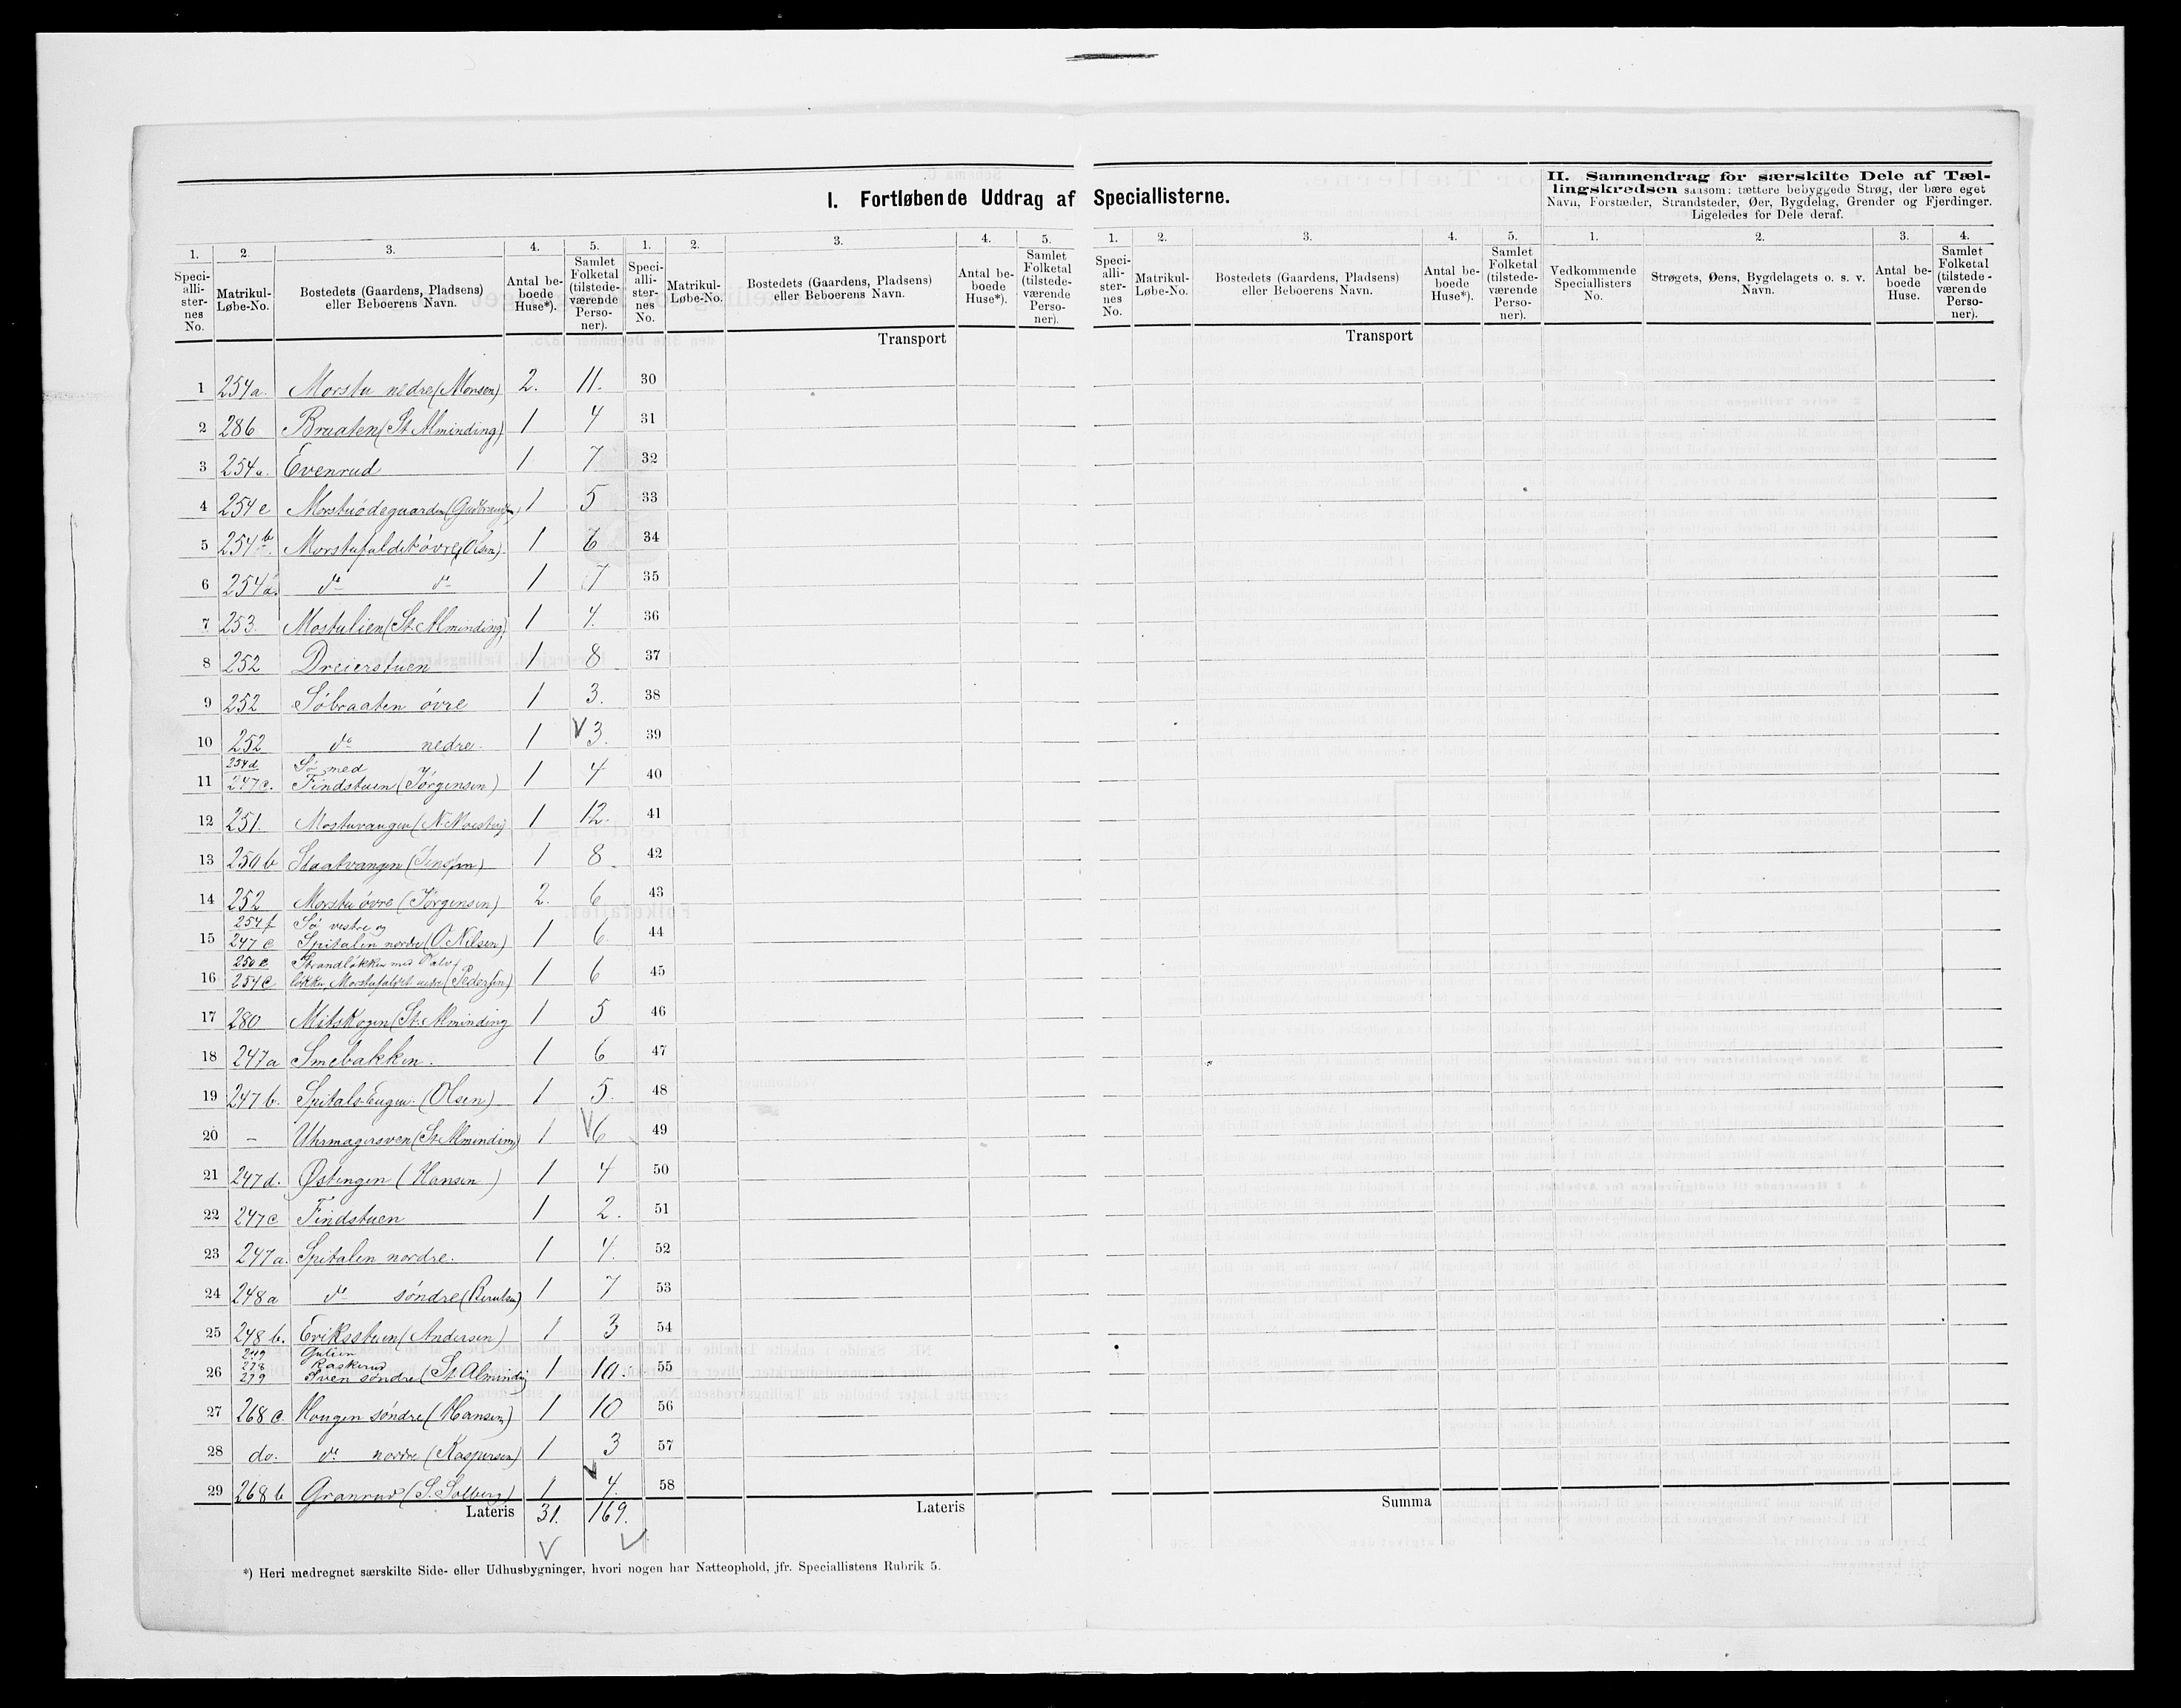 I. Fortløbende Uddrag af Speciallisterne.
II. Sammendrag for særskilte Dele af Tæl-
lingskredsen saasom: tættere bebyggede Strøg, der bære eget
Navn, Forstæder, Strandsteder, Øer, Bygdelag, Grender og Fjerdinger.
Ligeledes for Dele deraf.
1. 2. 3. 4. 5. 1. 2. 3. 4. 5. 1. 2. 3. 4. 5. 1. 2. 3. 4.
Speci-alli-ster-nes No. Matrikul-Løbe-No. Bostedets (Gaardens, Pladsens) eller Beboerens Navn. Antal be-boede Huse*). Samlet Folketal (tilstede-værende Perso-ner).
Speci-alli-ster-nes No. Matrikul-Løbe-No. Bostedets (Gaardens, Pladsens) eller Beboerens Navn. Antal be-boede Huse*). Samlet Folketal (tilstede-værende Perso-ner).
Speci-alli-ster-nes No. Matrikul-Løbe-No. Bostedets (Gaardens, Pladsens) eller Beboerens Navn. Antal be-boede Huse*). Samlet Folketal (tilstede-værende Perso-ner).
Vedkommende Speciallisters No. Strøgets, Øens, Bygdelagets o. s. v. Navn. Antal be-boede Huse. Samlet Folketal (tilstede-værende Perso-ner).
Transport Transport
1 254a. Morstu nedre (Monsen) 2. 11. 30
2 286 Braaten (St. Alminding) 1 4 31
3 254a. Evenrud 1 7 32
4 254e Morstuødegaarden 1 5 33
5 254b. Morstufaldet øvre (Olsen) 1 6 34
6 254a. do do 1 7 35
7 253. Mostulien (St. Alminding) 1 4. 36
8 252 Dreierstuen 1 8 37
9 252 Søbraaten øvre 1 3. 38
10 252 do nedre. 1 3. 39
254d Sø med
11 247c. Findstuen (Jørgensen) 1 4 40
12 251. Mostuvangen 1 12. 41
13 250b Staatvangen 1 8 42
14 252 Morstu øvre (Jørgensen) 2. 6 43
254f Sø vestre og
15 247e Spitalen nordre (O. Nilsen) 1 6 44
250c Strandløkken med
16 254c løkken, Morstufaldet nedre (Pedersen) 1 6 45
17 280 Mitskogen (St. Alminding 1 5 46
18 247a Smebakken. 1 6 47
19 247b. Spitals-Engen. (Olsen) 1 5. 48
20 – Uhrmagersven (St. Alminding) 1 6 49
21 247d. Østengen (Hansen) 1 4 50
22 247c Findstuen 1 2. 51
23 247a. Spitalen nordre. 1 4. 52
24 248a do søndre (Berntsen) 1 7 53
25 248b. Eriksstuen (Andersen) 1 3 54
249 Gulien
278 Raskerud
26 279 Sven søndre (St. Alminding 1 10. 55
27 268c. Hougen søndre (Hansen) 1 10 56
28 do. do nordre (Kaspersen) 1 3 57
29 268b Granrud (S. Solberg) 1 4. 58
Lateris 31. 169. Lateris Summa
*) Heri medregnet særskilte Side- eller Udhusbygninger, hvori nogen har Natteophold, jfr. Speciallistens Rubrik 5.